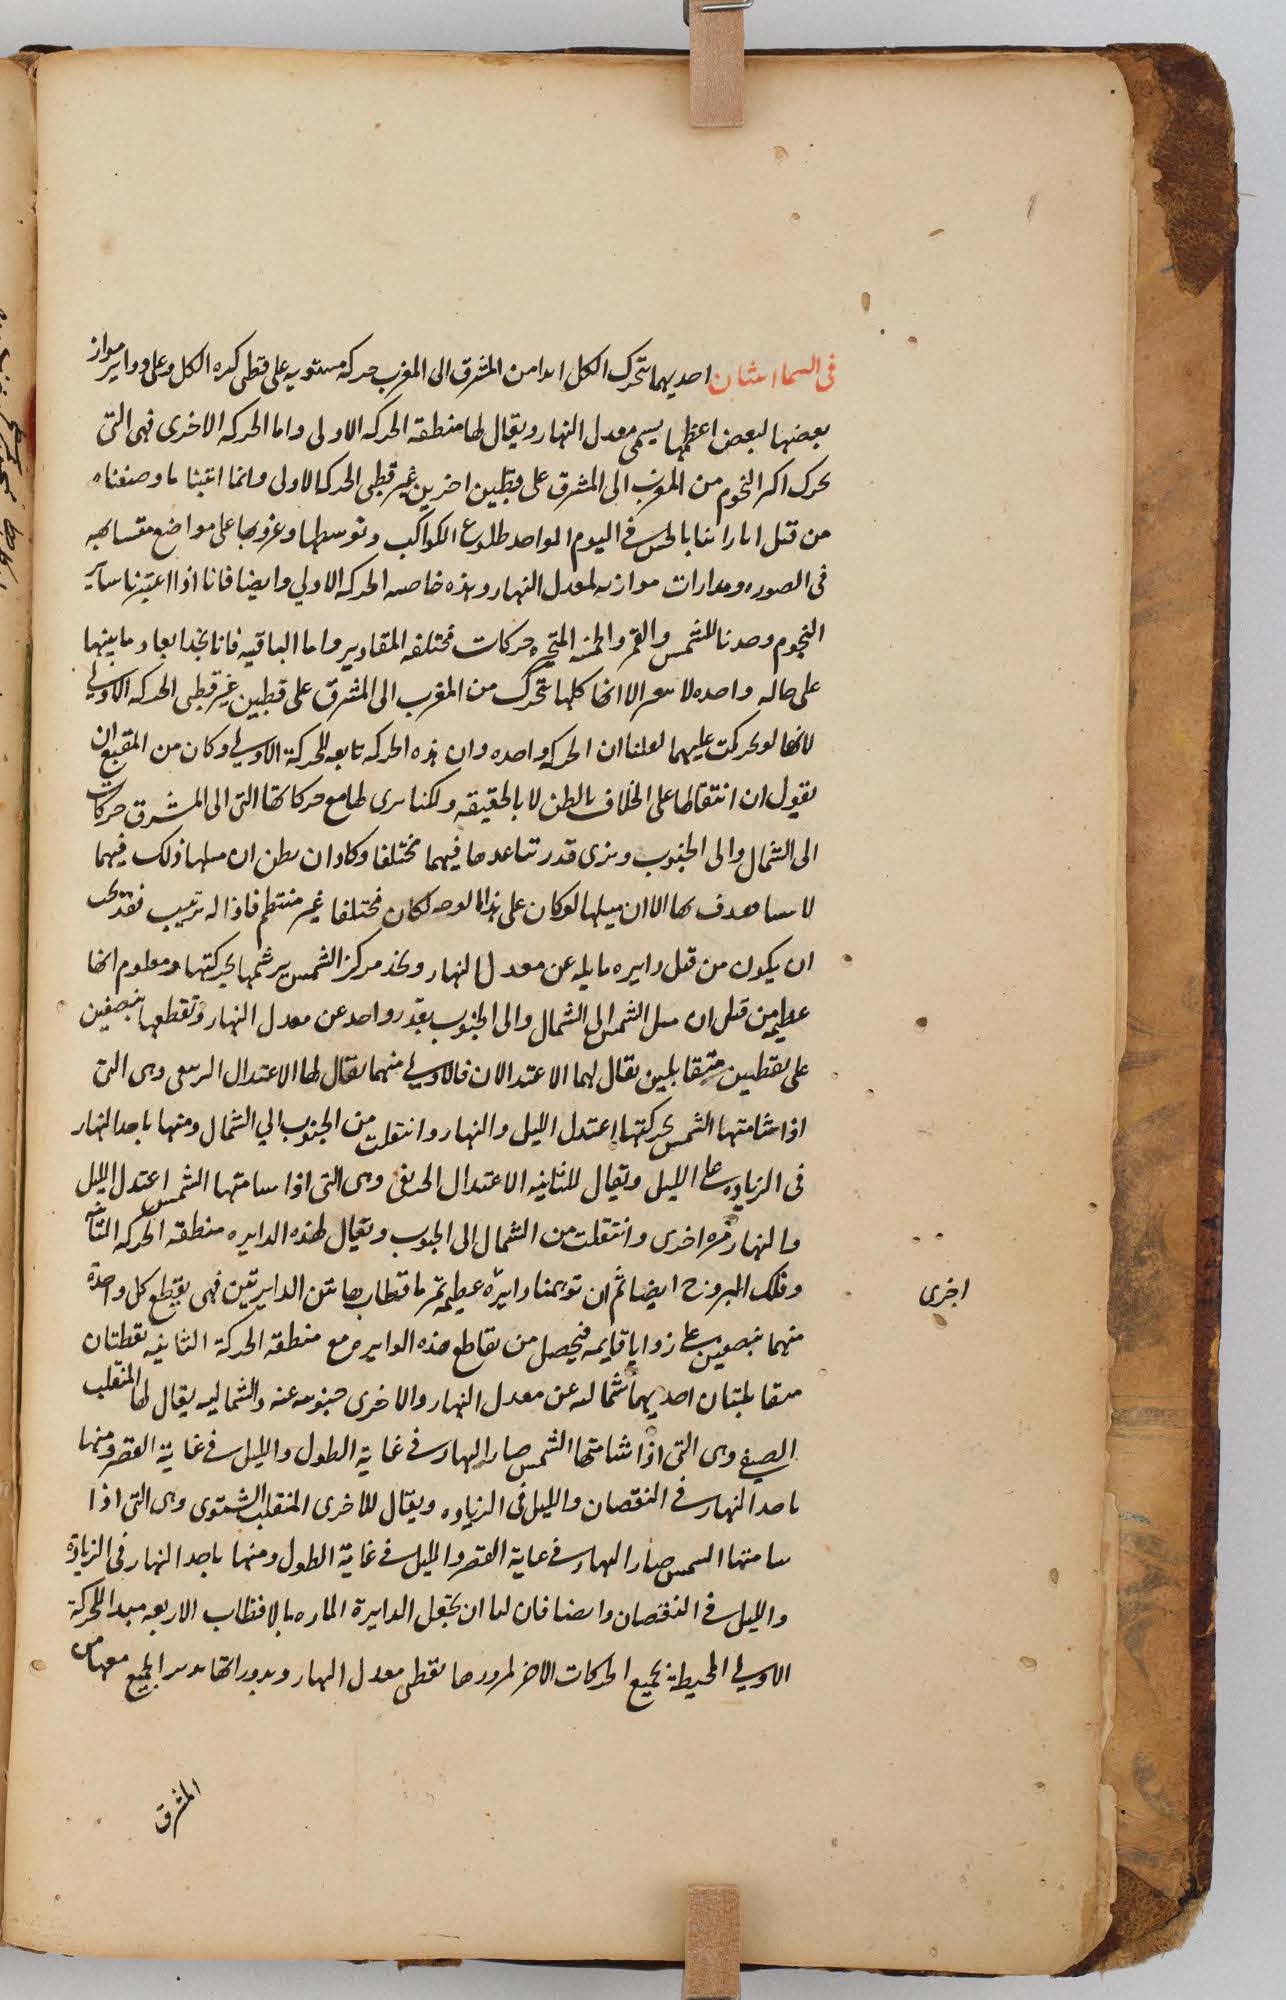 في السما اثنتان احديهما تتحرك الكل ابدا من المشرق الى المغرب حركة مستويه على قطبى كره الكل وعلى دواير مواز
بعضها لبعض اعظمها يسمى معدل النهار ويقال لها منطقه الحركه الاولى واما الحركه الاخرى فهى التى
تحرك اكر النجوم من المغرب الى المشرق على قطبين اخرين غير قطبى الحركه الاولى وانما اثبتنا ما وصفناه
من قبل انا راينا بالحس فى اليوم الواحد طلوع الكواكب وتوسطها وغروبها على مواضع متشابهه
فى الصوره ومدارات موازيه لمعدل النهار وهذه خاصه الحركه الاولي وايضا فانا اذا اعتبرنا ساير
النجوم وجدنا للشمس والقمر والخمسه المتحيره حركات مختلفه المقادير واما الباقيه فانا نجد ابعاد ما بينها
على حاله واحده لا تتغير الا انها كلها تتحرك من المغرب الى المشرق على قطبين غير قطبى الحركه الاولي
لانها لو تحركت عليهما لعلمنا ان الحركه واحده وان هذه الحركه تابعه للحركة الاولي وكان من المقنع ان
نقول ان انتقالها على الخلاف بالظن لا بالحقيقه ولكنا نرى لها مع حركاتها التى الى المشرق حركات
الى الشمال والى الجنوب ونرى قدر تباعدها فيهما مختلفا وكاد ان يظن ان ميلها ذلك فيهما
لا الا ان ميلها لو كان على هذا الوجه لكان مختلفا غير منتظم فاذا له ترتيب فقد يجب
ان يكون من قبل دايره مايله عن معدل النهار ونجد مركز الشمس يرسمها بحركتها ومعلوم انها
عظيمه من قبل ان ميل الشمس الى الشمال والى الجنوب بقدر واحد عن معدل النهار وتقطعها بنصفين
على نقطتين متقابلين يقال لهما الاعتدالان فالاولي منهما يقال لها الاعتدال الربيعى وهى التى
اذا شامتها الشمس بحركتها اعتدل الليل والنهار وانتقلت من الجنوب الي الشمال ومنها ياخد النهار
فى الزياده على الليل ويقال للثانيه الاعتدال الخريفى وهى التى اذا سامتها الشمس اعتدل الليل
والنهار مره اخرى وانتقلت من الشمال الى الجنوب ويقال لهذه الدايره منطقه الحركه الثانيه
وفلك البروج ايضا ثم ان توهمنا دايرة عظيمه تمر باقطاب هاتين الدايرتين فهى يقطع كل واحدة
اخرى
منهما بنصفين على زوايا قايمه فيحصل من تقاطع هذه الدايره مع منطقه الحركة الثانيه نقطتان
متقابلتان احديهما شماليه عن معدل النهار والاخرى جنوبيه عنه والشماليه يقال لها المنقلب
الصيفي وهى التى اذا شامتها الشمس صار النهار فى غاية الطول والليل فى غاية القصر ومنها
ياخد النهار في النقصان والليل فى الزياده ويقال للاخرى المنقلب الشتوى وهى التى اذا
سامتها الشمس صار النهار فى غاية القصر والليل فى غاية الطول ومنها ياخد النهار فى الزيادة
والليل في النقصان وايضا فان لنا ان نجعل الدايرة الماره بالاقطاب الاربعه مبدا للحركة
الاولي المحيطة بجميع الحركات الاخر لمرورها بقطبى معدل النهار وبدورانها يدير الجميع معها من
المشرق